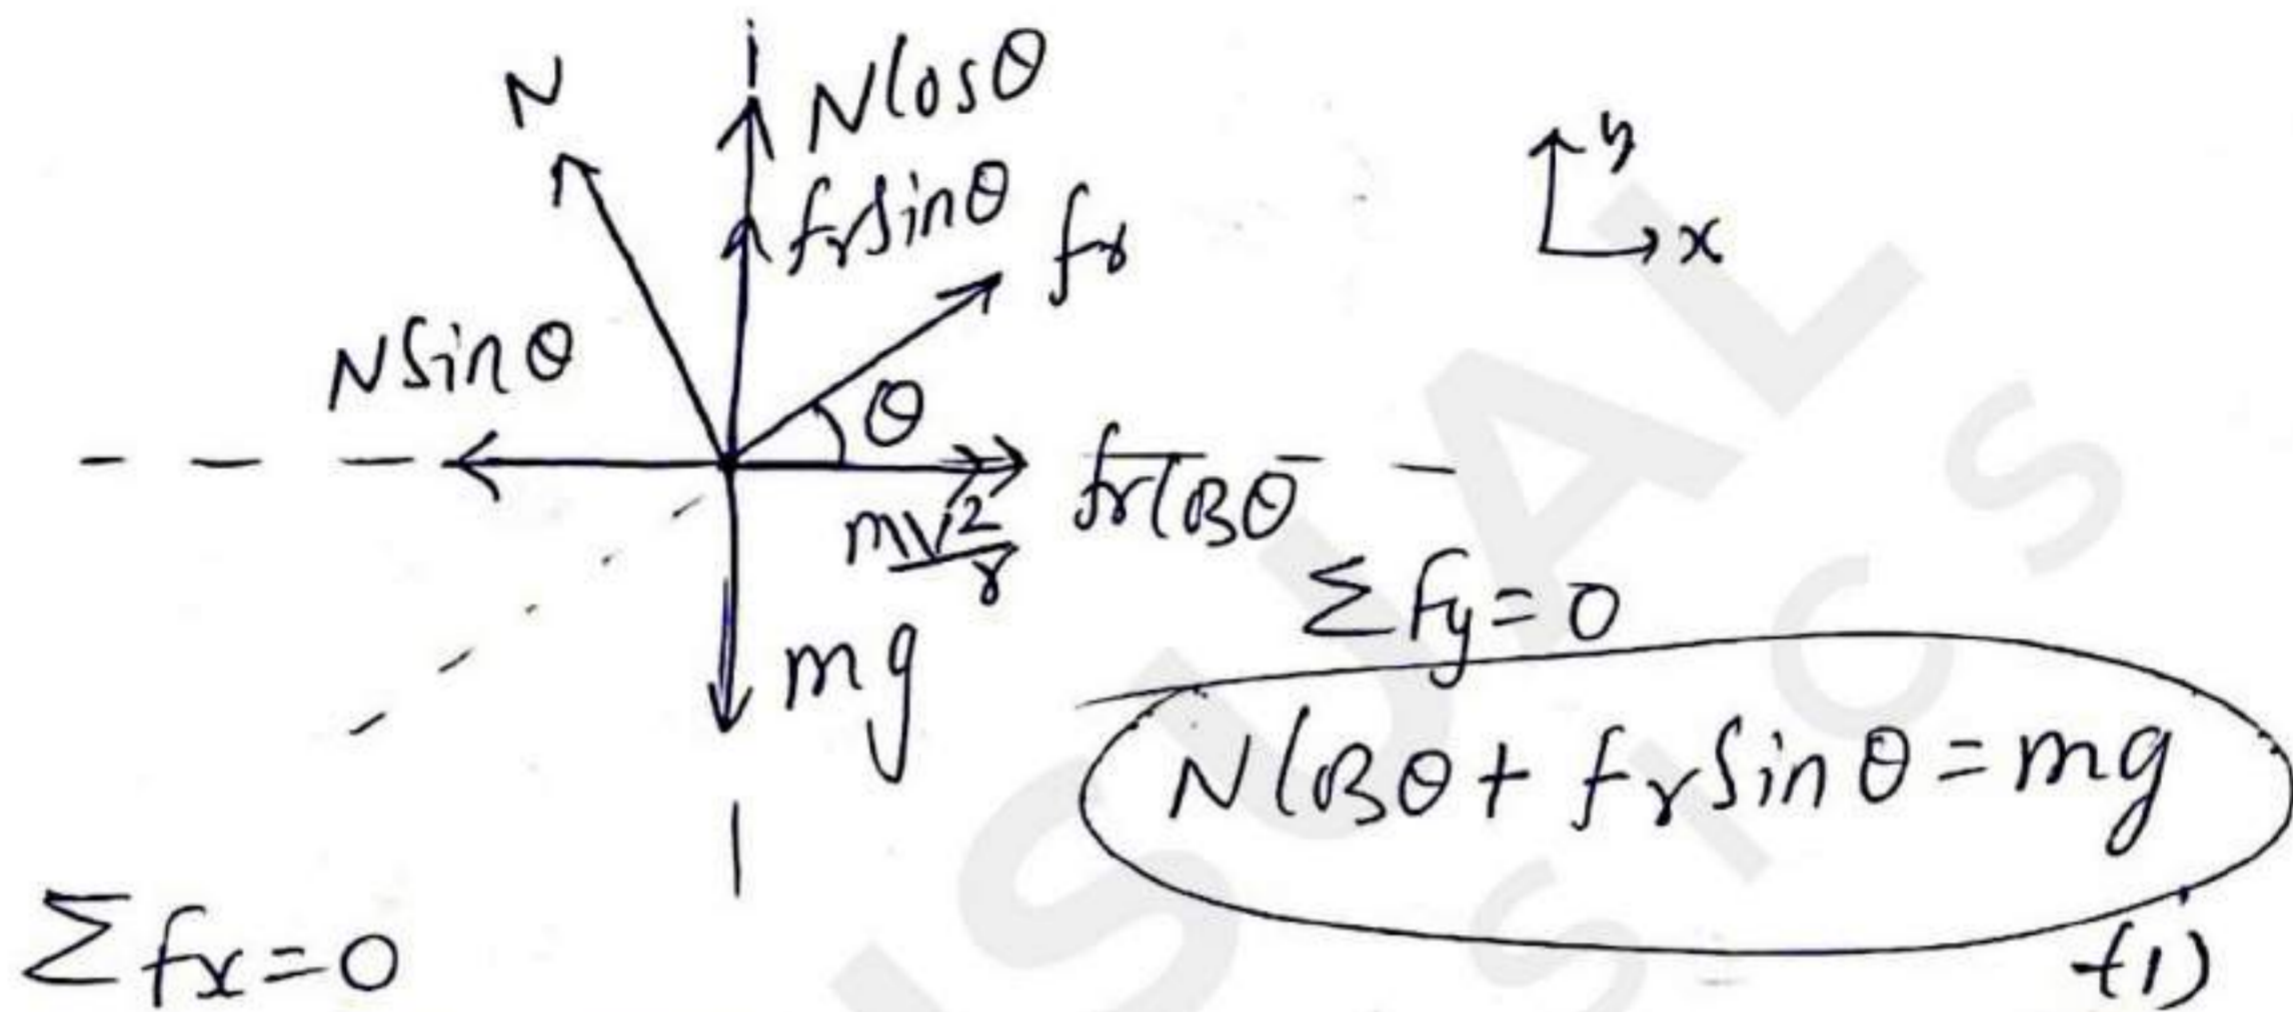 N
Ncosθ
frsinθ
fr
y
x
Nsinθ
θ
frcosθ
mv²/r
mg
Σfy=0
Ncosθ+frsinθ=mg
-(1)
Σfx=0